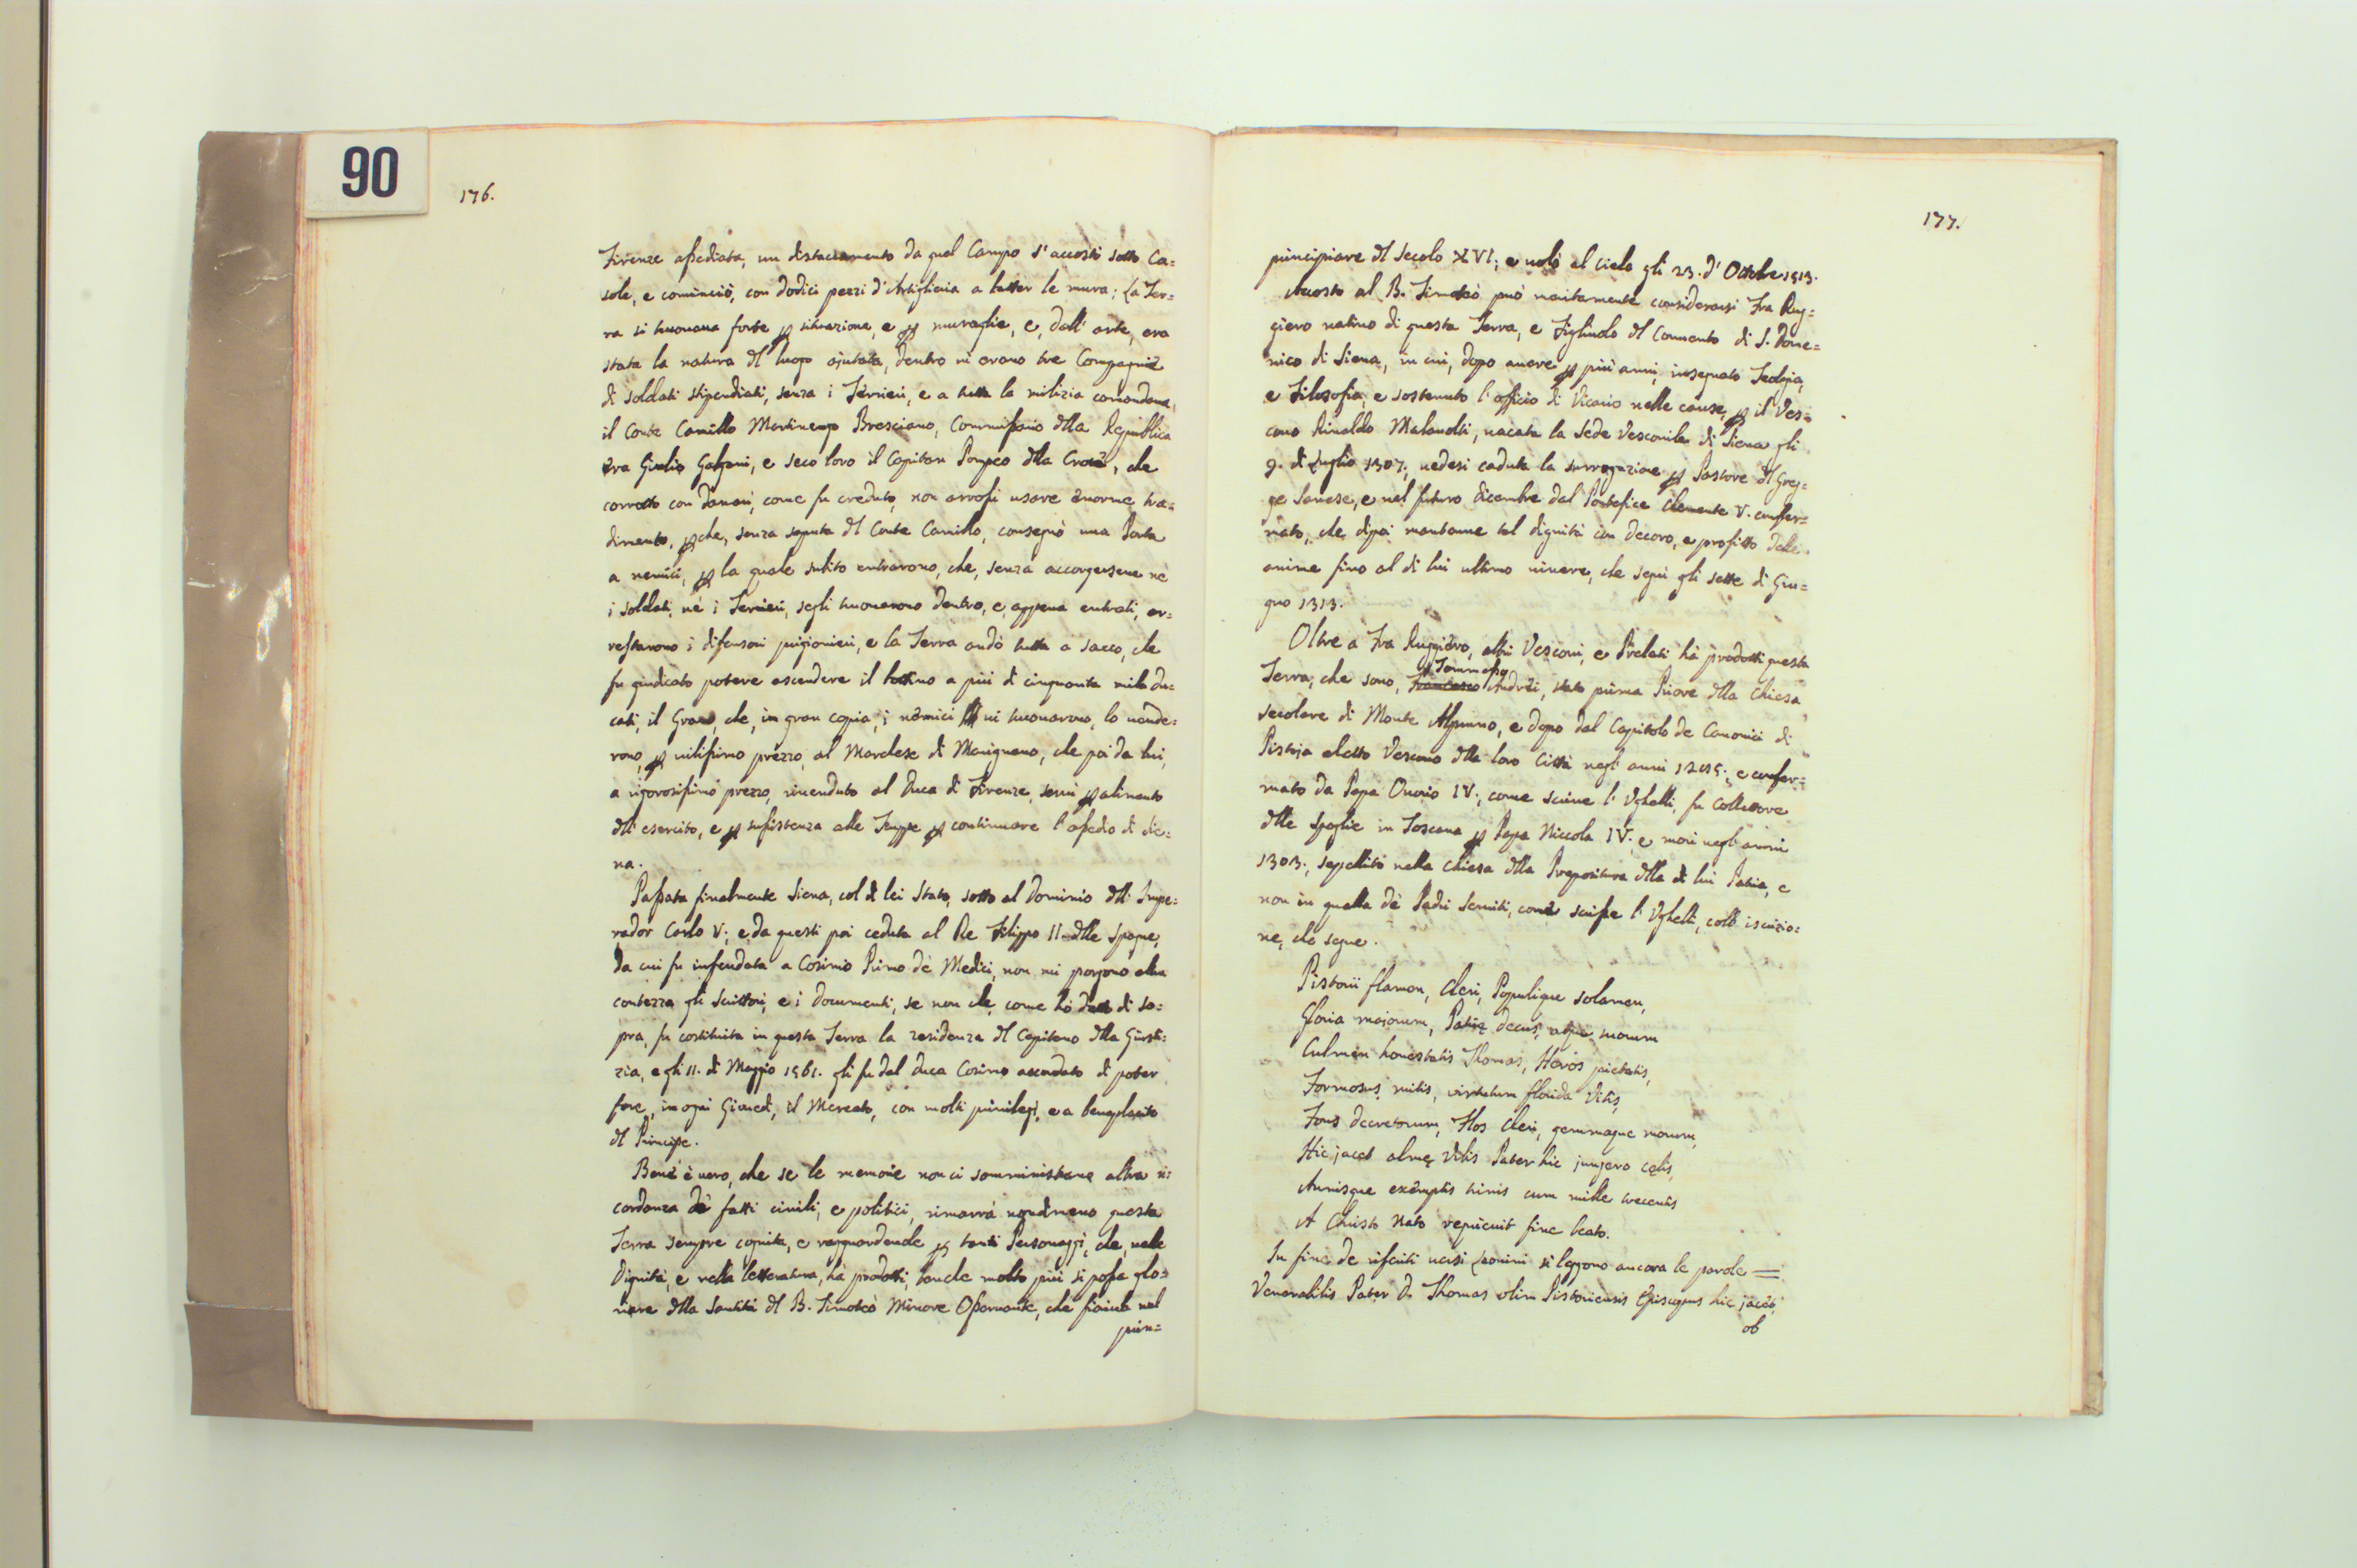 90
176.
Firenze assediata, un distaccamento da quel Campo s'accostò sotto Ca=
sole, e cominciò, con dodici pezzi d'Artiglieria a batter le mura; La Ter=
ra si trouaua forte p situazione, e p muraglie, e, dall'arte, era
stata la natura dl luogo ajutata, dentro ui erano tre Compagnie
di soldati stipendiati, senza i Terrieri, e a tutta la milizia comandaua,
il Conte Camillo Martinengo Bresciano, Commissario dlla Republica
era Giulio Galgani, e seco loro il Capitan Pompeo dlla Croce, che
corrotto con danari, come fu creduto, non arrossì usare enorme tra=
dimento, pche, senza saputa dl Conte Camillo, consegnò una Porta
a nemici, p la quale subito entrarono, che, senza accorgersene nè
i soldati, nè i Terrieri, segli trouarono dentro, e, appena entrati, ar=
restarono i difensori prigionieri, e la Terra andò tutta a sacco, che
fu giudicato potere ascendere il bottino a più di cinquanta mila du=
cati, il Grano, che, in gran copia, i nemici ui trouarono, lo uende=
rono, p uilissimo prezzo, al Marchese di Marignano, che poi da lui,
a rigorosissimo prezzo, riuenduto al Duca di Firenze, seruì p alimento
dll'esercito, e p sussistenza alle Truppe p continuare l'assedio di Sie=
na.
Passata finalmente Siena, col di lei Stato, sotto al Dominio dll'Impe=
rador Carlo V; e, da questi poi ceduta al Re Filippo II dlle Spagne,
da cui fu infeudata a Cosimo Primo de' Medici, non mi porgono altra
contezza gli Scrittori, e i Documenti, se non che, come hò detto di so=
pra, fu costituita in questa Terra la residenza dl Capitano dlla Giusti=
zia, e gli 11. di Maggio 1561. gli fu dal Duca Cosimo accordato di poter
fare, in ogni Giouedì, il Mercato, con molti priuilegi, e a beneplacito
dl Principe.
Bene è uero, che se le memorie non ci somministrano altra ri=
cordanza de' fatti ciuili, e politici, rimarrà nondimeno questa
Terra sempre cognita, e ragguardeuole p tanti Personaggi, che, nelle
Dignità, e nella letteratura, hà prodotti, benche molto più si possa glo=
riare dlla Santità dl B. Timoteò Minore Osseruante, che fiorì nel
prin=
177.
principiare dl Secolo XVI; e uolò al cielo gli 23. d'Ottobre 1513.
Accosto al B. Timoteò può meritamente considerarsi Fra Rug=
giero natiuo di questa Terra, e Figliuolo dl Conuento di S. Dome=
nico di Siena, in cui, dopo auere p più anni, insegnato Teologia,
e Filosofia, e sostenuto l'officio di Vicario nelle cause, p il Ves=
couo Rinaldo Malauolti, uacata la Sede Vescouile di Siena gli
9. di Luglio 1307, uedesi caduta la surrogazione p Pastore dl Greg=
ge Sanese, e nel futuro dicembre dal Pontefice Clemente V. confer=
mato, che dipoi mantenne tal dignità con decoro, e profitto delle
anime fino al di lui ultimo uiuere, che seguì gli sette di Giu=
gno 1313.
Oltre a Fra Ruggiero, altri Vescoui, e Prelati hà prodotti questa
Terra, che sono, Francesco Tommaso Andrei, stato prima Priore dlla Chiesa
secolare di Monte Alpruno, e dopo dal Capitolo de Canonici di
Pistoja eletto Vescouo dlla loro Città negl'anni 1285; e confer=
mato da Papa Onorio IV; come scriue l'Ughelli, fu Collettore
dlle Spoglie in Toscana p Papa Niccola IV. e morì negl'anni
1303; sepellito nella Chiesa dlla Propositura dlla di lui Patria, e
non in quella de' Padri Seruiti, come scrisse l'Ughelli, coll'iscrizio=
ne, che segue.
Pistorii flamen, Cleri, Populique solamen,
Gloria majorum, Patriæ decus, atque morum
Culmen honestatis Thomas, Heros pietatis,
Formosus, mitis, virtutum florida Vitis,
Fons decretorum, Flos Cleri, gemmaque morum,
Hic jacet almę Vitis Pater hic jungero cęlis,
Annisque exemptis trinis cum mille trecentis
A Christo Nato requieuit fine beato.
In fine de riferiti uersi Leonini si leggono ancora le parole =
Venerabilis Pater D. Thomas olim Pistoriensis Episcopus hic jacet,
ob